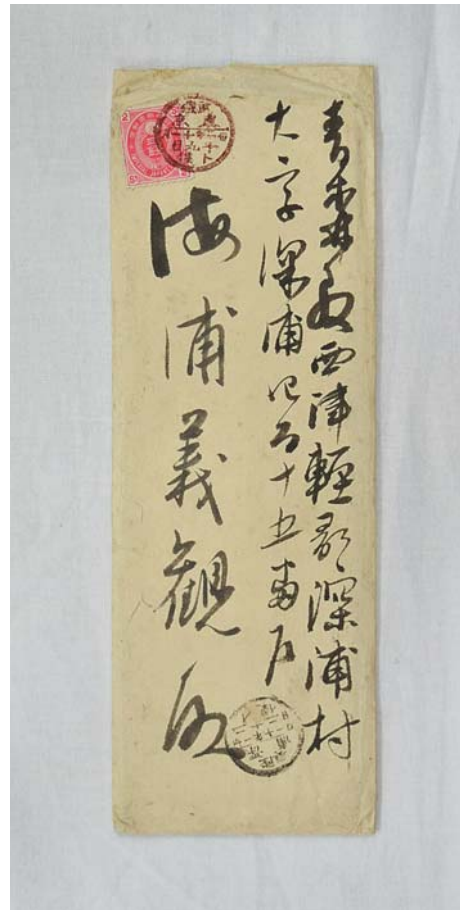 青森縣西津輕郡深浦村
大字深浦四百十五番戸
海浦義觀殿